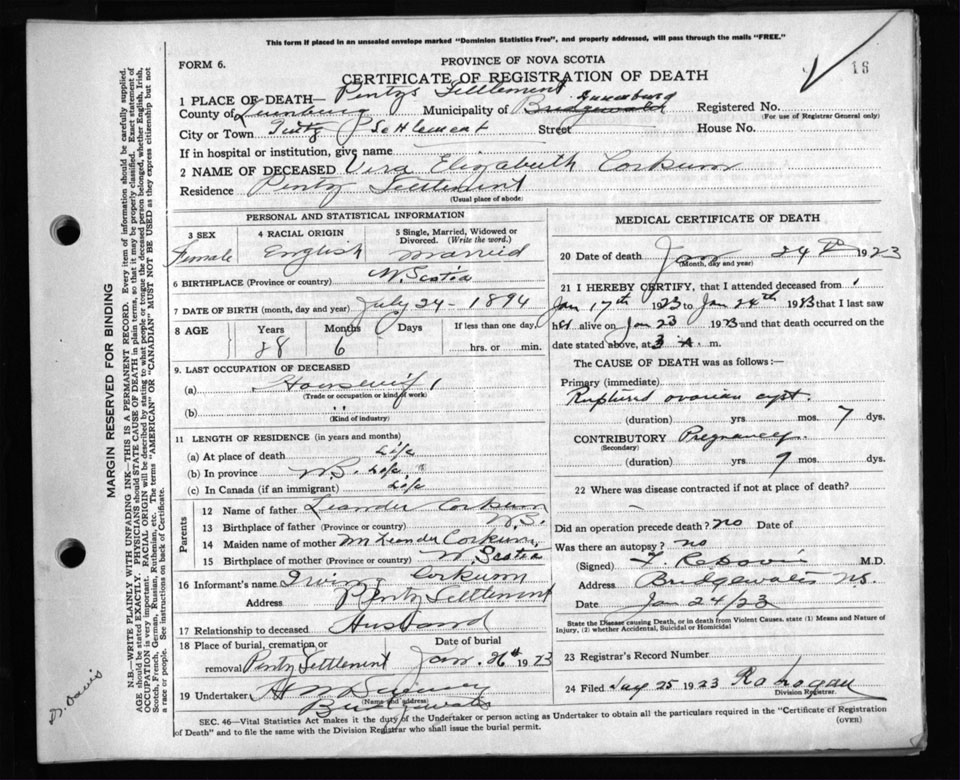 This form if placed in an unsealed envelope marked "Dominion Statistics Free", and properly addressed, will pass through the mails "FREE."
FORM 6.
PROVINCE OF NOVA SCOTIA
CERTIFICATE OF REGISTRATION OF DEATH
1 PLACE OF DEATH— Pentzs Settlement
County of Lunenburg Municipality of Bridgewater Lunenburg Registered No.
(For use of Registrar General only)
City or Town Pentz Settlement Street House No.
If in hospital or institution, give name
2 NAME OF DECEASED Vira Elizabeth Corkum
Residence Pentz Settlement
(Usual place of abode)
PERSONAL AND STATISTICAL INFORMATION
3 SEX 4 RACIAL ORIGIN 5 Single, Married, Widowed or Divorced. (Write the word.)
Female English Married
6 BIRTHPLACE (Province or country) N. Scotia
7 DATE OF BIRTH (month, day and year) July 24 - 1894
8 AGE Years Months Days If less than one day,
28 6 hrs. or min.
9. LAST OCCUPATION OF DECEASED
(a) Housewife
(Trade or occupation or kind of work)
(b) "
(Kind of industry)
11 LENGTH OF RESIDENCE (in years and months)
(a) At place of death Life
(b) In province N.S. Life
(c) In Canada (if an immigrant) Life
Parents
12 Name of father Leander Corkum
13 Birthplace of father (Province or country) N.S.
14 Maiden name of mother Mrs Leander Corkum
15 Birthplace of mother (Province or country) N. Scotia
16 Informant's name Irving Corkum
Address Pentz Settlement
17 Relationship to deceased Husband
18 Place of burial, cremation or removal Date of burial
Pentz Settlement Jan. 26th 1923
19 Undertaker
(Name and address)
Bridgewater
MEDICAL CERTIFICATE OF DEATH
20 Date of death Jan 24th 1923
(Month, day and year)
21 I HEREBY CERTIFY, that I attended deceased from
Jan 17th 1923 to Jan 24th 1923 that I last saw
her alive on Jan 23 1923 and that death occurred on the
date stated above, at 3 A. m.
The CAUSE OF DEATH was as follows:—
Primary (immediate)
Ruptured ovarian cyst.
(duration) yrs. mos. 7 dys.
CONTRIBUTORY Pregnancy.
(Secondary)
(duration) yrs. mos. dys.
22 Where was disease contracted if not at place of death?
Did an operation precede death? no Date of
Was there an autopsy? no
(Signed) M.D.
Address Bridgewater NS.
Date Jan 24/23
State the Disease causing Death, or in death from Violent Causes, state (1) Means and Nature of Injury, (2) whether Accidental, Suicidal or Homicidal)
23 Registrar's Record Number
24 Filed 25 1923
Division Registrar.
SEC. 46—Vital Statistics Act makes it the duty of the Undertaker or person acting as Undertaker to obtain all the particulars required in the "Certificate of Registration
of Death" and to file the same with the Division Registrar who shall issue the burial permit.
(OVER)
MARGIN RESERVED FOR BINDING
N.B.—WRITE PLAINLY WITH UNFADING INK—THIS IS A PERMANENT RECORD. Every item of information should be carefully supplied.
AGE should be stated EXACTLY. PHYSICIANS should STATE CAUSE OF DEATH in plain terms, so that it may be properly classified. Exact statement of
OCCUPATION is very important. RACIAL ORIGIN will be described by stating to what people or tongue the deceased person belonged, whether English, Irish,
Scotch, French, German, Russian, Ruthenian, etc. The terms "AMERICAN" OR "CANADIAN" MUST NOT BE USED as they express citizenship but not
a race or people. See instructions on back of Certificate.
Dr. Davis